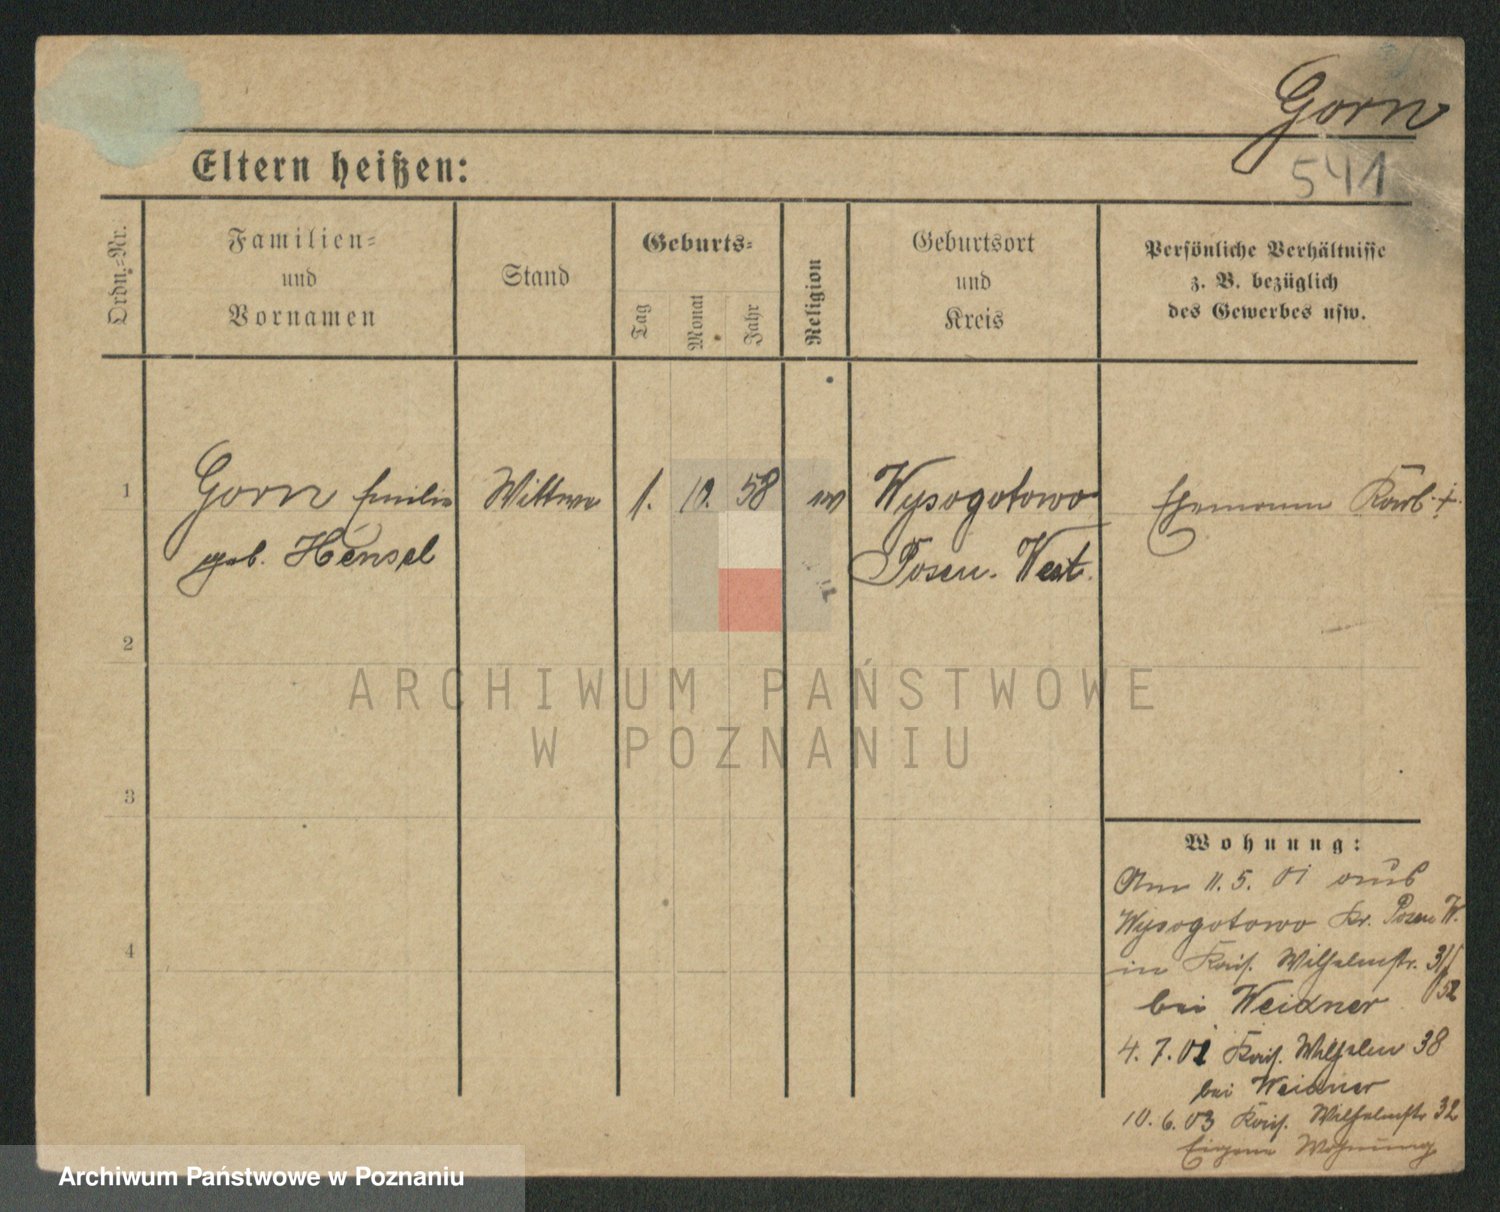 Gorn
541
Eltern heißen:
Ordn.-Nr.
Familien-
und
Vornamen
Stand
Geburts-
Tag
Monat
Jahr
Religion
Geburtsort
und
Kreis
Persönliche Verhältnisse
z. B. bezüglich
des Gewerbes usw.
1
Gorn Emilie
geb. Hensel
Wittwe
1.
10.
58
ev
Wysogotowo
Posen. West.
Ehemann Karl †.
2
3
4
ARCHIWUM PAŃSTWOWE
W POZNANIU
Wohnung:
Am 11.5.01 aus
Wysogotowo Kr. Posen W.
in Kais. Wilhelmstr.
bei Weidner
4.7.01 Kais. Wilhelm 38
bei Weidner
10.6.03 Kais. Wilhelmstr 32
Eigene Wohnung
Archiwum Państwowe w Poznaniu